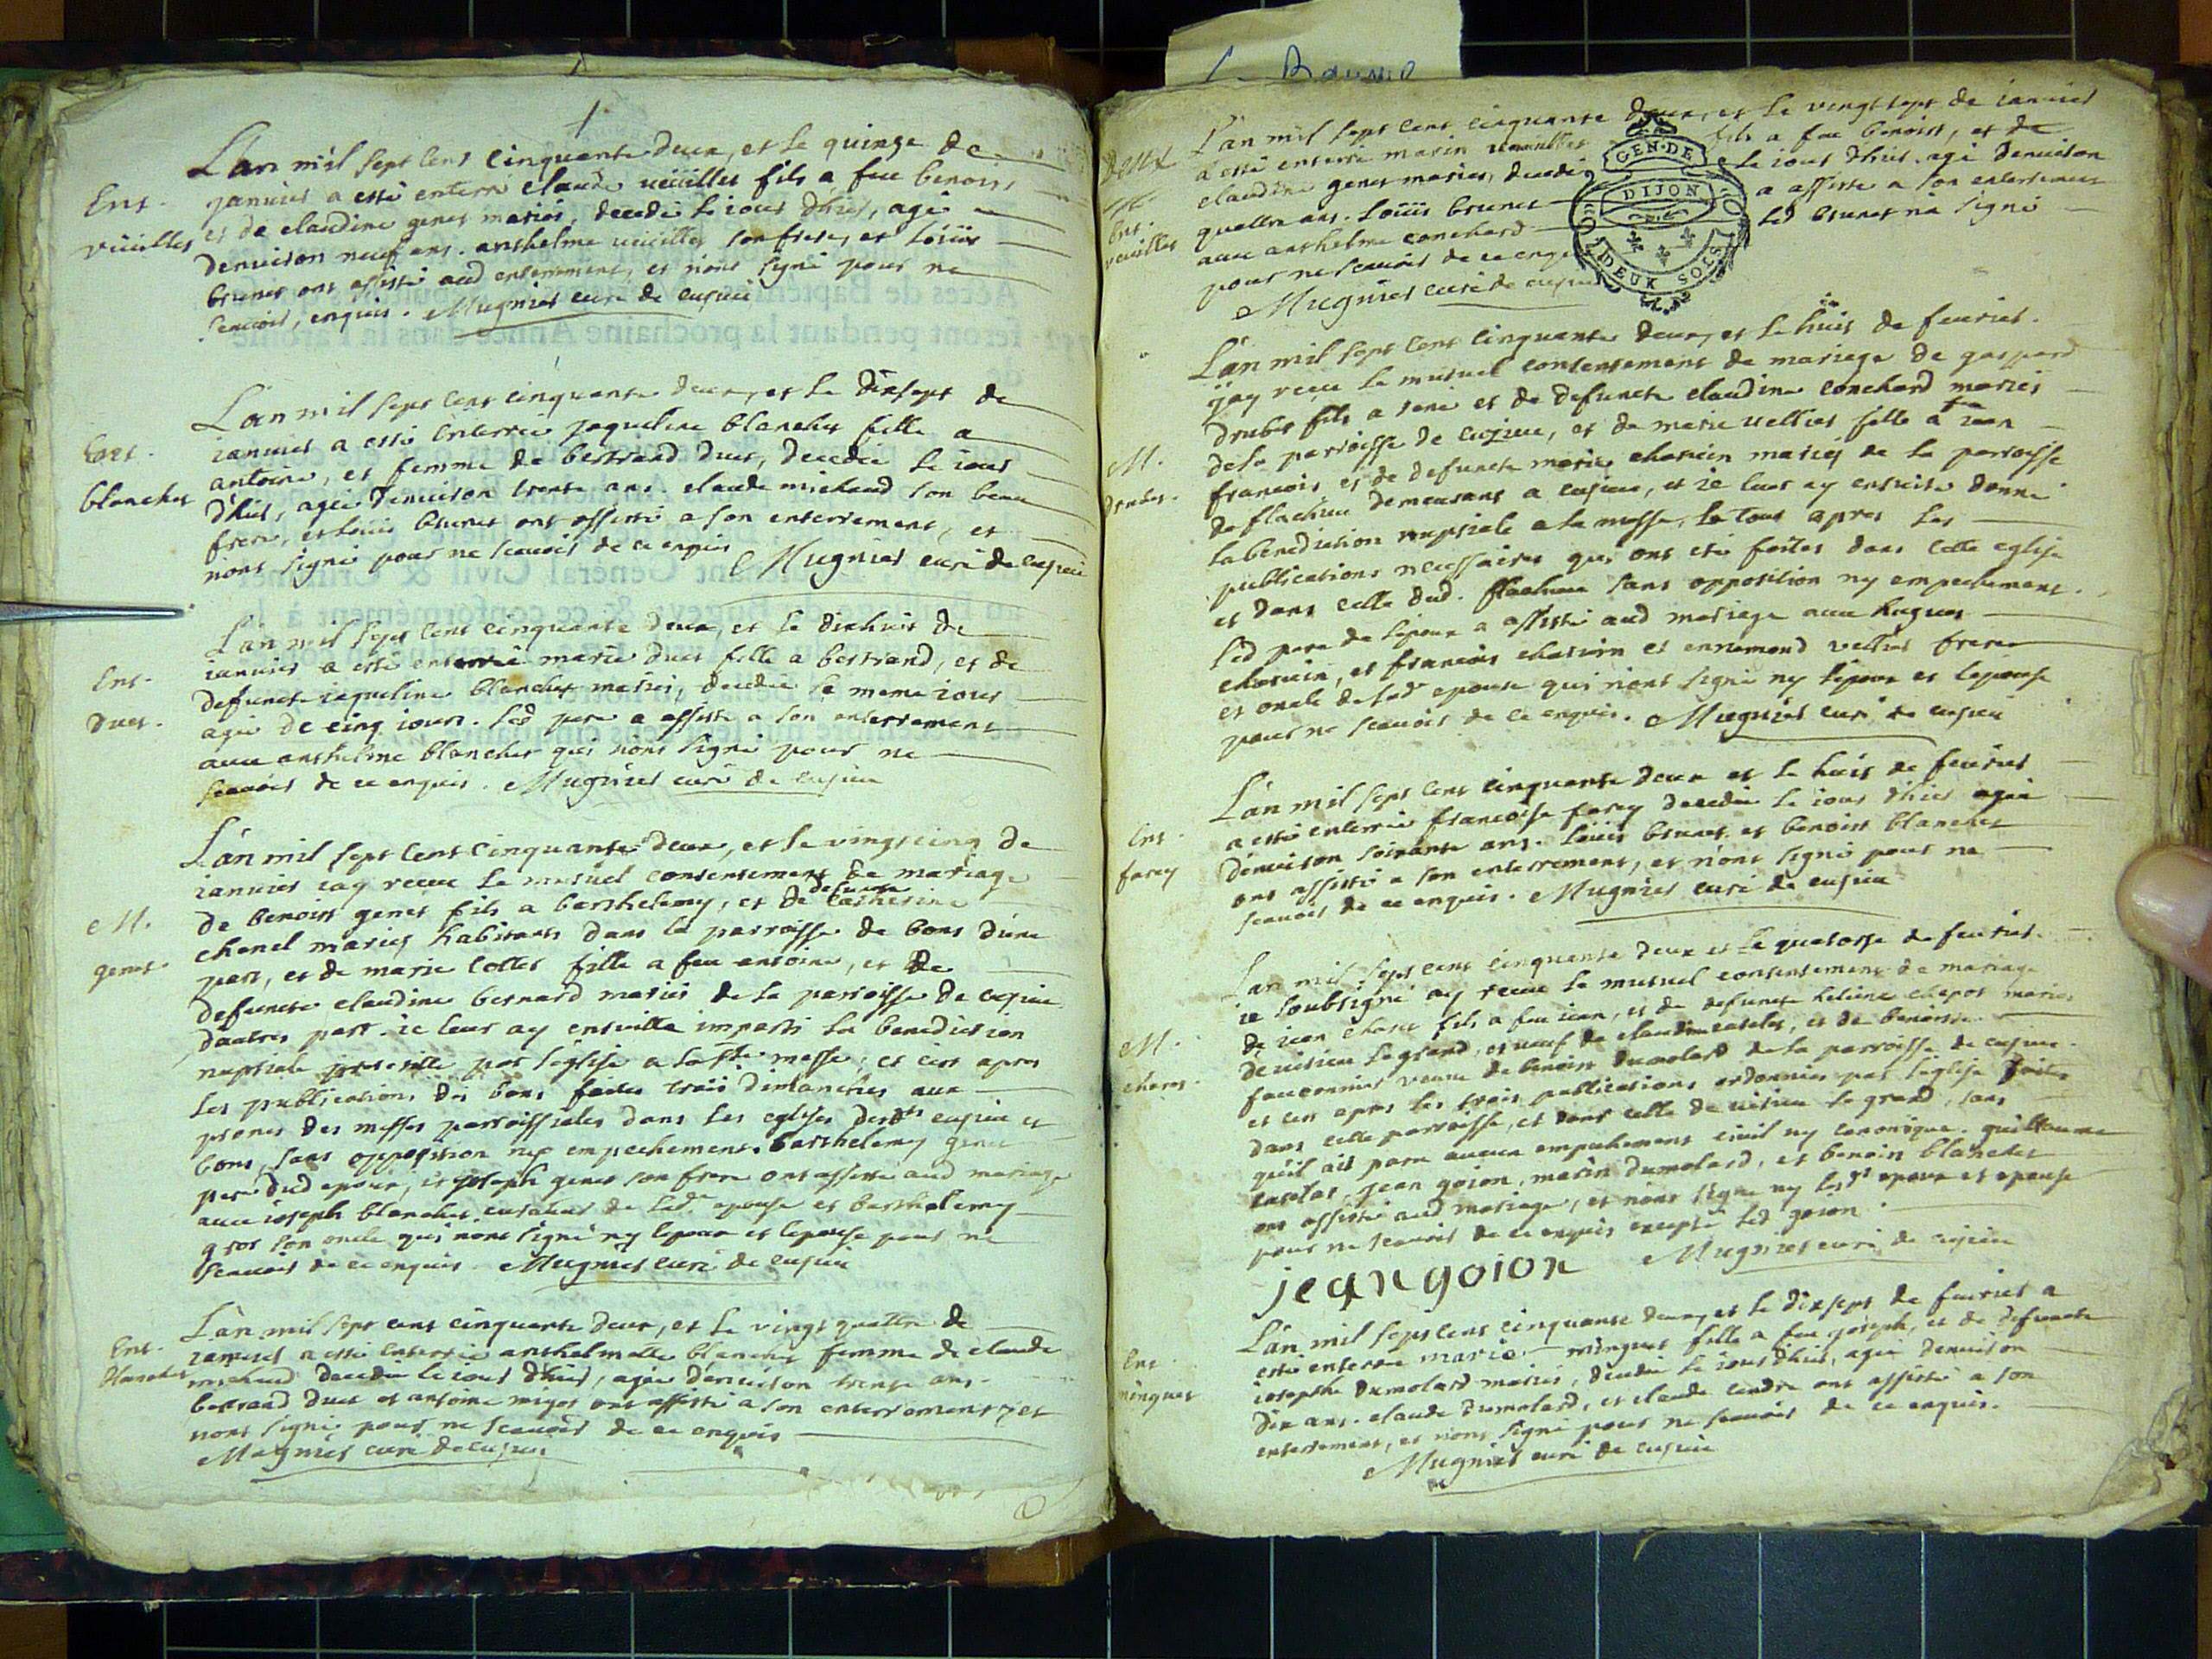 1
L'an mil sept cens cinquante deux, et le quinze de
Ent. janvier a esté enterré claude veüillet fils a feu benoist
veüillet et de claudine genet mariés, decedé le jour d'hier, agé
denviron neuf ans. anthelme veüillet son frere, et Loüis
brunet ont assisté aud enterrement, et n'ont signé pour ne
scavoir, enquis. Mugnier curé de cusieu
L'an mil sept cens cinquante deux, et le dixsept de
Ent. janvier a esté enterrée jaqueline blanchet fille a
antoine, et femme de bertrand duet, decedée le jour
blanchet d'hier, agée denviron trente ans. claude michaud son beau
frere, et Loüis brunet ont assisté a son enterrement, et
n'ont signé pour ne scavoir de ce enquis Mugnier curé de cusieu
L'an mil sept cens cinquante deux, et le dixhuit de
janvier a esté enterrée marie duet fille a bertrand, et de
Ent. defuncte jaqueline blanchet mariés, decedée le meme jour
duet. agée de cinq jours. Led pere a assisté a son enterrement
avec anthelme blanchet qui n'ont signé pour ne
scavoir de ce enquis. Mugnier curé de cusieu
L'an mil sept cens cinquante deux, et le vingtcinq de
janvier j'ay receu le mutuel consentement de mariage
M. de benoist genet fils a barthelemy, et de defuncte catherine
chanel mariés habitants dans la parroisse de bons d'une
genet. part, et de marie collet fille a feu antoine, et de
defuncte claudine bernard mariés de la parroisse de cusieu
dautres part. je leur ay ensuitte imparti la benediction
nuptiale prescritte par l'église a la ste messe, et ce apres
les publications des bans faites trois dimanches aux
prones des messes parroissiales dans les eglises desdts cusieu et
bons, sans opposition ny empechement. barthelemy genet
pere dud epoux, et joseph genet son frere ont assisté aud mariage
avec joseph blanchet curateur de lad. epouse et barthelemy
gros son oncle qui n'ont signé ny lepoux et lepouse pour ne
scavoir de ce enquis. Mugnier curé de cusieu
L'an mil sept cens cinquante deux, et le vingt quattre de
Ent. janvier a esté enterrée anthelmette blanchet femme de claude
blanchet michaud decedée le jour d'hier, agée denviron trente ans.
bertrand duet et antoine miget ont assisté a son enterrement, et
n'ont signé pour ne scavoir de ce enquis
Mugnier curé de cusieu
L'an mil sept cens cinquante deux, et le vingt sept de janvier
deux a esté enterré marin veüillet fils a feu benoist, et de
claudine genet mariés, decedé le jour d'hier agé denviron
Ent. quattre ans. Loüis brunet a assisté a son enterrement
veüillet avec anthelme conchard Led brunet n'a signé
pour ne scavoir de ce enquis
Mugnier curé de cusieu
GEN·DE
DIJON
DEUX SOLS
L'an mil sept cens cinquante deux, et le huit de fevrier.
j'ay receu le mutuel consentement de mariage de gaspard
drubet fils a rené et de defuncte claudine conchard mariés
M. de la parroisse de cusieu, et de marie vettier fille a feu jean
drubet. francois et de defuncte marie chatrin mariés de la parroisse
de flachieu demeurans a cusieu, et je leur ay ensuite donné
la benediction nuptiale a la messe, le tout apres les
publications necessaires qui ont eté faites dans cette eglise
et dans celle dud. flachieu sans opposition ny empechement.
Led pere de lepoux a assisté aud mariage avec hugues
chatrin, et francois chatrin et ennemond vettier freres
et oncle de lad. epouse qui n'ont signé ny lepoux et lepouse
pour ne scavoir de ce enquis. Mugnier curé de cusieu
L'an mil sept cens cinquante deux et le huit de fevrier
Ent. a esté enterrée francoise farcy decedée le jour d'hier agée
farcy denviron soixante ans. Loüis brunet et benoist blanchet
ont assisté a son enterrement, et n'ont signé pour ne
scavoir de ce enquis. Mugnier curé de cusieu
L'an mil sept cens cinquante deux et le quatorze de fevrier.
je soubsigné ay receu le mutuel consentement de mariage
M. de jean fils a feu jean, et de defuncte heleine chapot mariés
de virieu le grand, et veuf de claudine et de benoiste
faucomnier veuve de benoist dumolard de la parroisse de cusieu.
et ce apres les trois publications ordonnées par l'eglise faites
dans cette parroisse, et dans celle de virieu le grand, sans
qu'il ait paru aucun empechement civil ny canonique. guillaume
jean goion, marin dumolard, et benoist blanchet
ont assisté aud mariage, et n'ont signé ny lesdt epoux et epouse
pour ne scavoir de ce enquis excepté led goion.
jean goion Mugnier curé de cusieu
L'an mil sept cens cinquante deux, et le dixsept de fevrier a
Ent. esté enterrée marie minguet fille a feu joseph, et de defuncte
minguet josephe dumolard mariés, decedée le jour d'hier, agée denviron
dix ans. claude dumolard, et claude cendre ont assisté a son
enterrement, et n'ont signé pour ne scavoir de ce enquis.
Mugnier curé de cusieu